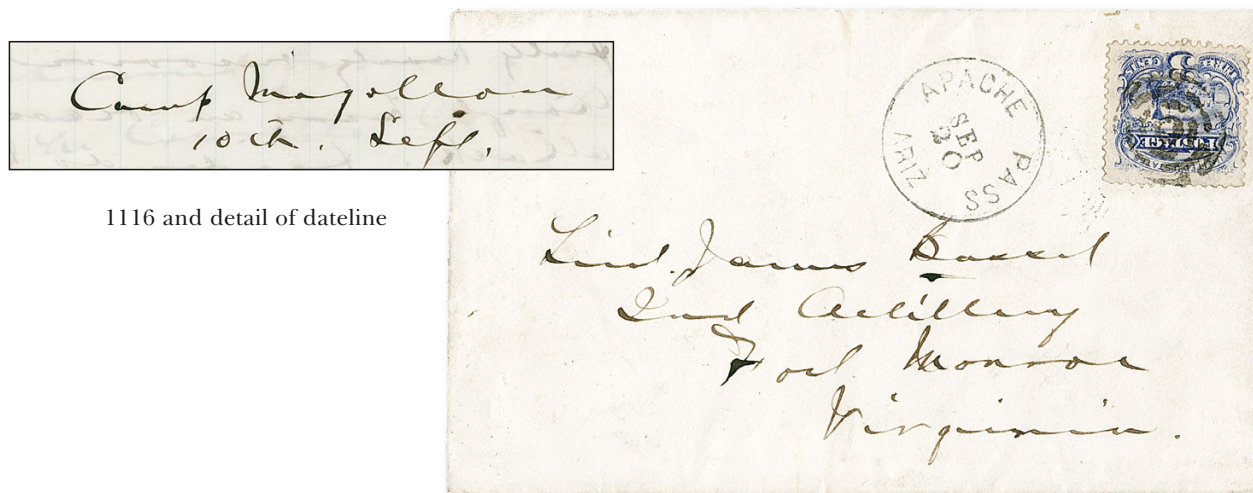 Camp Mogollon
10th. Sept.
1116 and detail of dateline
APACHE PASS
SEP
20
ARIZ
POSTAGE
Lieut. James Bassel
2nd Artillery
Fort Monroe
Virginia.